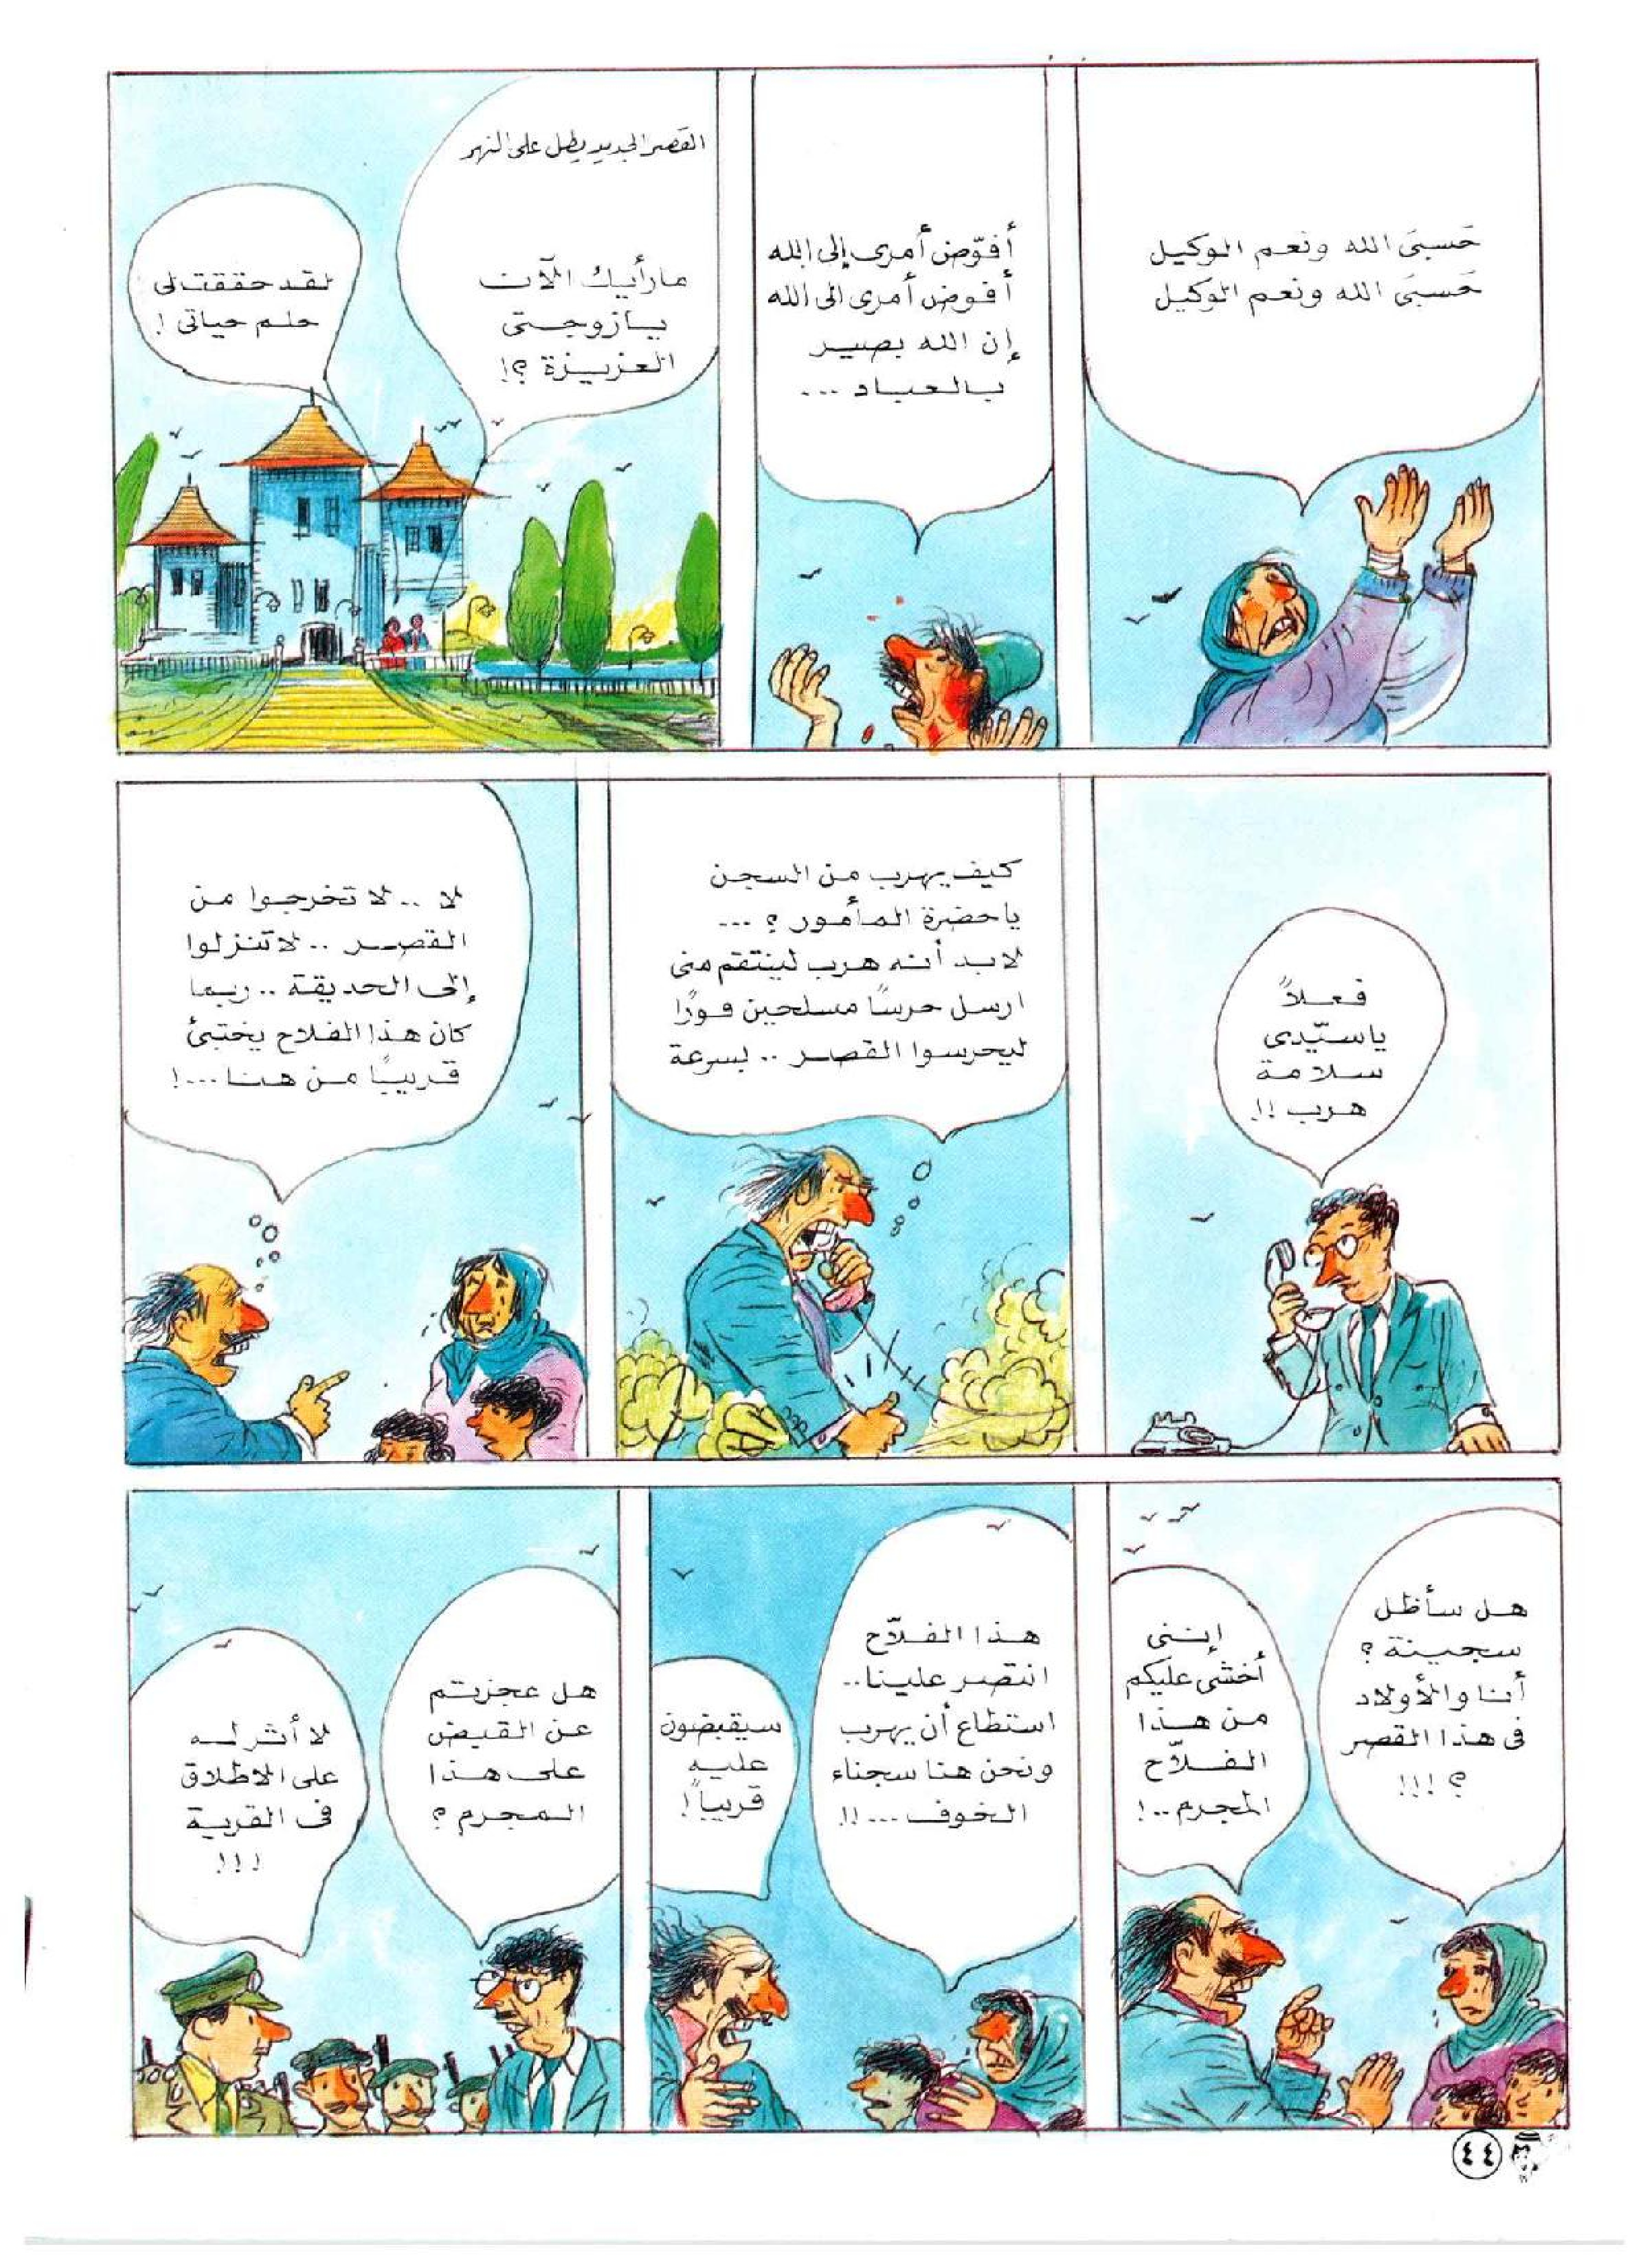 حَسبىَ الله ونعم الوكيل
حَسبىَ الله ونعم الوكيل
أفوّض أمرى إلى الله
أفوض أمرى إلى الله
إن الله بصير
بالعباد ...
القصر الجديد يطل على النهر
ما رأيك الآن
يازوجتى
العزيزة ؟!
لقد حققت لى
حلم حياتى !
فعلاً
ياسيّدى
سلامة
هرب !!
كيف يهرب من السجن
ياحضرة المأمور ؟ ...
لابد أنه هرب لينتقم منى
ارسل حرسًا مسلحين فورًا
ليحرسوا القصر .. بسرعة
لا .. لا تخرجوا من
القصر .. لاتنزلوا
إلى الحديقة .. ربما
كان هذا الفلاح يختبئ
قريبًا من هنا ...!
هل سأظل
سجينة ؟
أنا والأولاد
فى هذا القصر
؟ !!!
إننى
أخشى عليكم
من هذا
الفلاّح
المجرم ..!
هذا الفلاّح
انتصر علينا ..
استطاع أن يهرب
ونحن هنا سجناء
الخوف ... !!
سيقبضون
عليه
قريباً !
هل عجزتم
عن القبض
على هذا
المجرم ؟
لا أثر له
على الاطلاق
فى القرية
!!!
٤٤